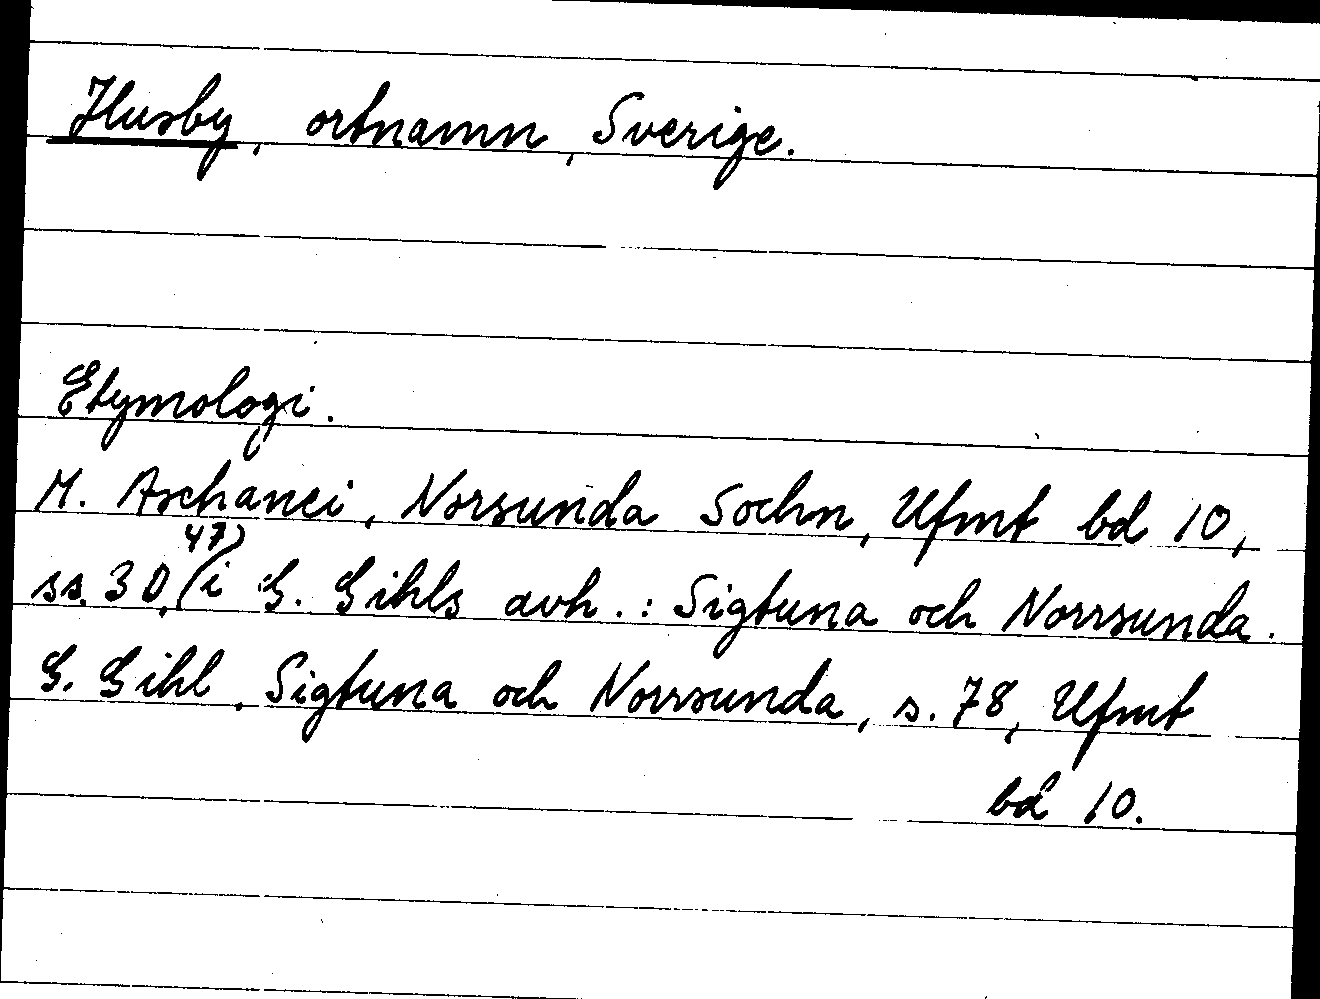 Husby, ortnamn, Sverige.
Etymologi.
M. Aschanei, Norsunda Sochn, Ufmt bd 10,
ss. 30, 47) (i G. Gihls avh.: Sigtuna och Norrsunda.
G. Gihl, Sigtuna och Norrsunda, s. 78, Ufmt
bd 10.